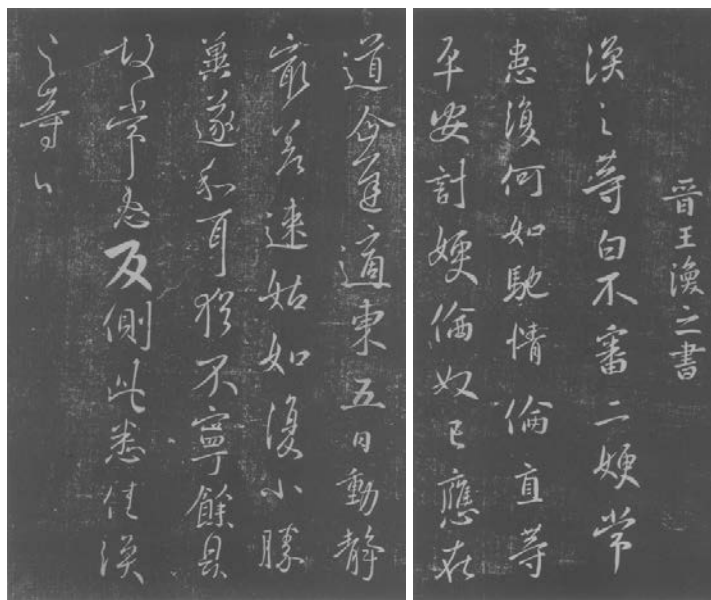 晉王渙之書
渙之等白不審二嫂常
患復何如馳情倫直等
平安計嫂倫奴已應在
道企遲適東五日動靜
最差速姑如復小勝
冀遂和耳猶不寧餘具
故常反側此悉佳渙
之等白